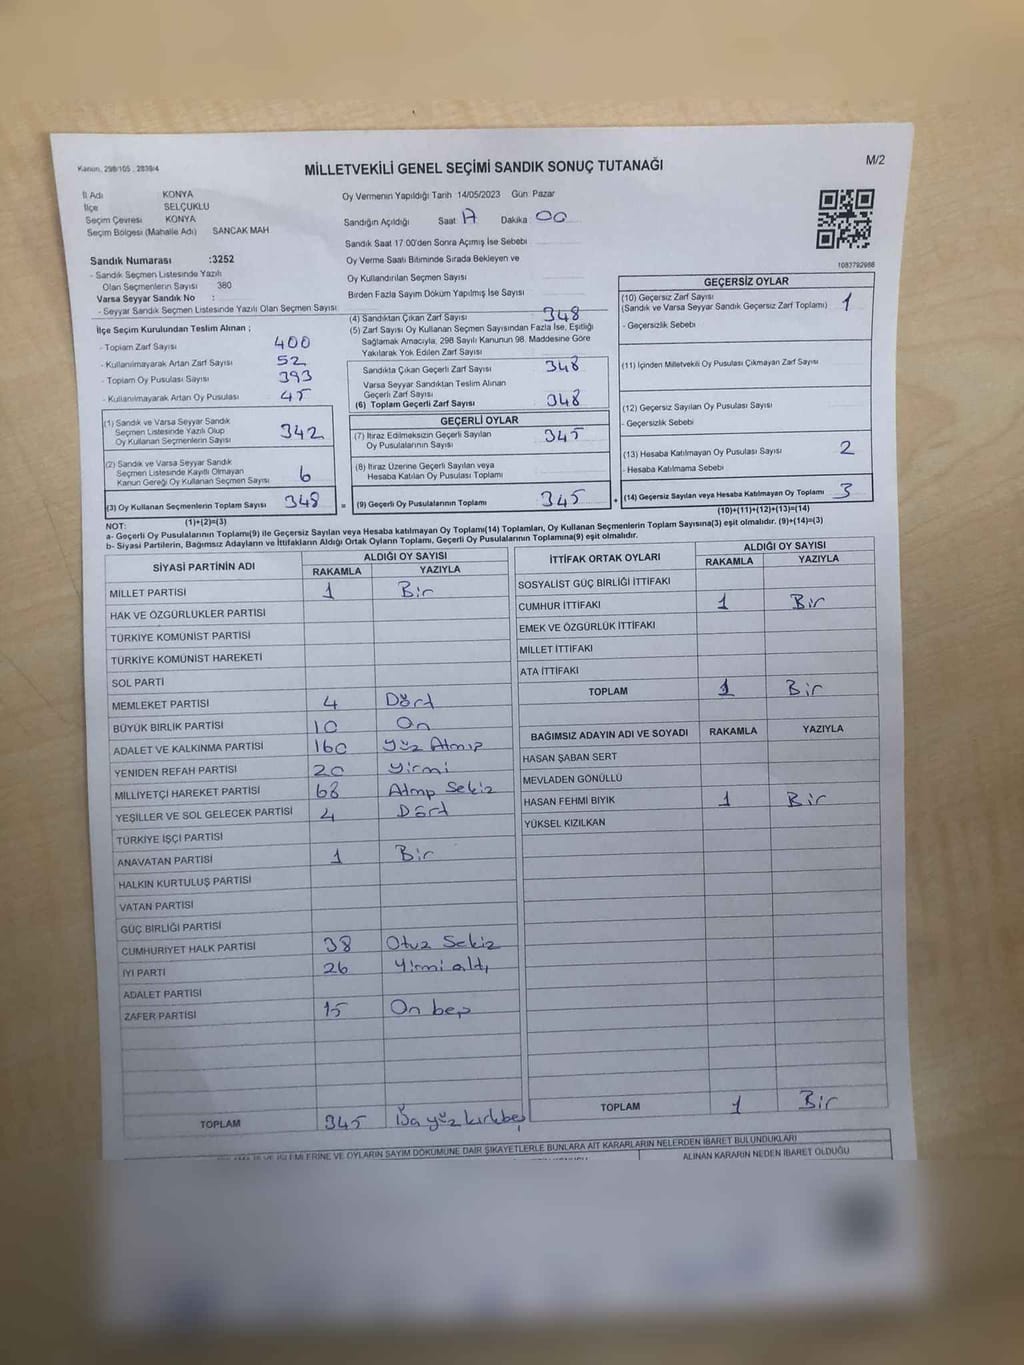 Kanun, 298/105 , 2839/4
MİLLETVEKİLİ GENEL SEÇİMİ SANDIK SONUÇ TUTANAĞI
M/2
İl Adı KONYA
İlçe SELÇUKLU
Seçim Çevresi KONYA
Seçim Bölgesi (Mahalle Adı) SANCAK MAH
Oy Vermenin Yapıldığı Tarih 14/05/2023 Gün: Pazar
Sandığın Açıldığı Saat 17 Dakika 00
Sandık Saat 17:00'den Sonra Açımış İse Sebebi
Oy Verme Saati Bitiminde Sırada Bekleyen ve
Oy Kullandırılan Seçmen Sayısı
Birden Fazla Sayım Döküm Yapılmış İse Sayısı
1083792988
Sandık Numarası :3252
- Sandık Seçmen Listesinde Yazılı
Olan Seçmenlerin Sayısı 380
Varsa Seyyar Sandık No :
- Seyyar Sandık Seçmen Listesinde Yazılı Olan Seçmen Sayısı
İlçe Seçim Kurulundan Teslim Alınan ;
- Toplam Zarf Sayısı 400
- Kullanılmayarak Artan Zarf Sayısı 52
- Toplam Oy Pusulası Sayısı 393
- Kullanılmayarak Artan Oy Pusulası 45
(1) Sandık ve Varsa Seyyar Sandık
Seçmen Listesinde Yazılı Olup
Oy Kullanan Seçmenlerin Sayısı 342
(2) Sandık ve Varsa Seyyar Sandık
Seçmen Listesinde Kayıtlı Olmayan
Kanun Gereği Oy Kullanan Seçmen Sayısı 6
(3) Oy Kullanan Seçmenlerin Toplam Sayısı 348
(1)+(2)=(3)
(4) Sandıktan Çıkan Zarf Sayısı 348
(5) Zarf Sayısı Oy Kullanan Seçmen Sayısından Fazla İse, Eşitliği
Sağlamak Amacıyla, 298 Sayılı Kanunun 98. Maddesine Göre
Yakılarak Yok Edilen Zarf Sayısı
Sandıkta Çıkan Geçerli Zarf Sayısı 348
Varsa Seyyar Sandıktan Teslim Alınan
Geçerli Zarf Sayısı
(6) Toplam Geçerli Zarf Sayısı 348
GEÇERLİ OYLAR
(7) İtiraz Edilmeksizin Geçerli Sayılan
Oy Pusulalarının Sayısı 345
(8) İtiraz Üzerine Geçerli Sayılan veya
Hesaba Katılan Oy Pusulası Toplamı
= (9) Geçerli Oy Pusulalarının Toplamı 345
GEÇERSİZ OYLAR
(10) Geçersiz Zarf Sayısı
(Sandık ve Varsa Seyyar Sandık Geçersiz Zarf Toplamı) 1
- Geçersizlik Sebebi
(11) İçinden Milletvekili Oy Pusulası Çıkmayan Zarf Sayısı
(12) Geçersiz Sayılan Oy Pusulası Sayısı
- Geçersizlik Sebebi
(13) Hesaba Katılmayan Oy Pusulası Sayısı 2
- Hesaba Katılmama Sebebi
+ (14) Geçersiz Sayılan veya Hesaba Katılmayan Oy Toplamı 3
(10)+(11)+(12)+(13)=(14)
NOT:
a- Geçerli Oy Pusulalarının Toplamı(9) ile Geçersiz Sayılan veya Hesaba katılmayan Oy Toplamı(14) Toplamları, Oy Kullanan Seçmenlerin Toplam Sayısına(3) eşit olmalıdır. (9)+(14)=(3)
b- Siyasi Partilerin, Bağımsız Adayların ve İttifakların Aldığı Ortak Oyların Toplamı, Geçerli Oy Pusulalarının Toplamına(9) eşit olmalıdır.
SİYASİ PARTİNİN ADI ALDIĞI OY SAYISI
RAKAMLA YAZIYLA
MİLLET PARTİSİ 1 Bir
HAK VE ÖZGÜRLÜKLER PARTİSİ
TÜRKİYE KOMÜNİST PARTİSİ
TÜRKİYE KOMÜNİST HAREKETİ
SOL PARTİ
MEMLEKET PARTİSİ 4 Dört
BÜYÜK BİRLİK PARTİSİ 10 On
ADALET VE KALKINMA PARTİSİ 160 Yüz Atmış
YENİDEN REFAH PARTİSİ 20 Yirmi
MİLLİYETÇİ HAREKET PARTİSİ 68 Atmış Sekiz
YEŞİLLER VE SOL GELECEK PARTİSİ 4 Dört
TÜRKİYE İŞÇİ PARTİSİ
ANAVATAN PARTİSİ 1 Bir
HALKIN KURTULUŞ PARTİSİ
VATAN PARTİSİ
GÜÇ BİRLİĞİ PARTİSİ
CUMHURİYET HALK PARTİSİ 38 Otuz Sekiz
İYİ PARTİ 26 Yirmi altı
ADALET PARTİSİ
ZAFER PARTİSİ 15 On beş
TOPLAM 345 yüz kırkbeş
İTTİFAK ORTAK OYLARI ALDIĞI OY SAYISI
RAKAMLA YAZIYLA
SOSYALİST GÜÇ BİRLİĞİ İTTİFAKI
CUMHUR İTTİFAKI 1 Bir
EMEK VE ÖZGÜRLÜK İTTİFAKI
MİLLET İTTİFAKI
ATA İTTİFAKI
TOPLAM 1 Bir
BAĞIMSIZ ADAYIN ADI VE SOYADI RAKAMLA YAZIYLA
HASAN ŞABAN SERT
MEVLADEN GÖNÜLLÜ
HASAN FEHMİ BIYIK 1 Bir
YÜKSEL KIZILKAN
TOPLAM 1 Bir
İŞLEMLERİNE VE OYLARIN SAYIM DÖKÜMÜNE DAİR ŞİKAYETLERLE BUNLARA AİT KARARLARIN NELERDEN İBARET BULUNDUKLARI
ALINAN KARARIN NEDEN İBARET OLDUĞU